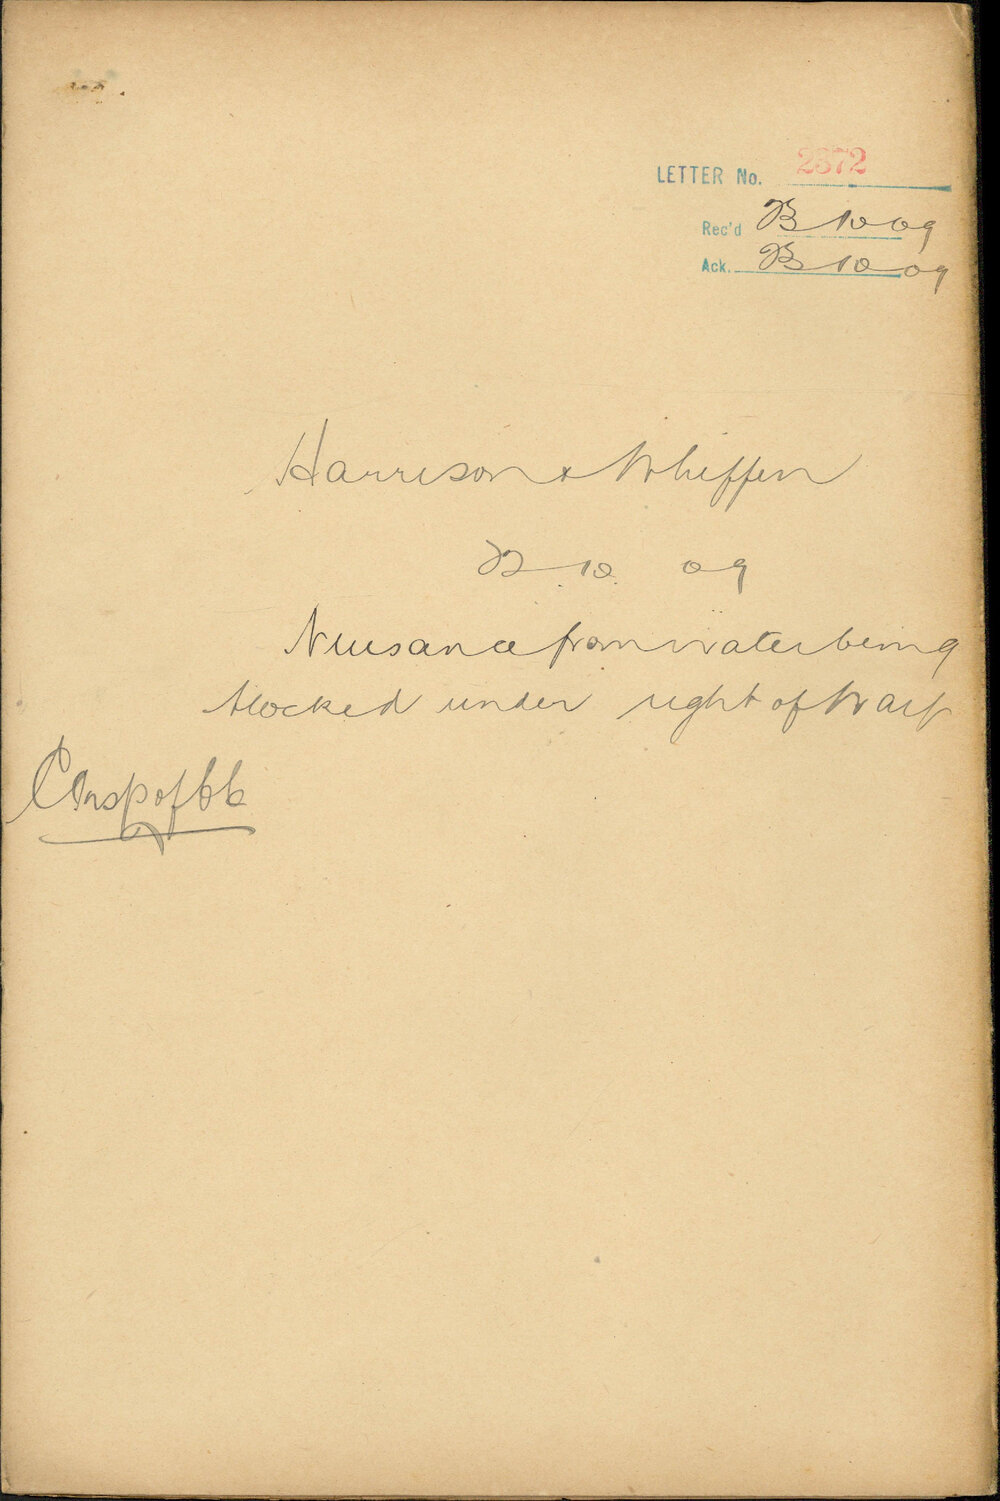 LETTER No. 2672
Rec'd 13 10 09
Ack. 13 10 09
Harrison & Whiffen
12 10 09
Nuisance from water being
blocked under right of Way
C Insp of